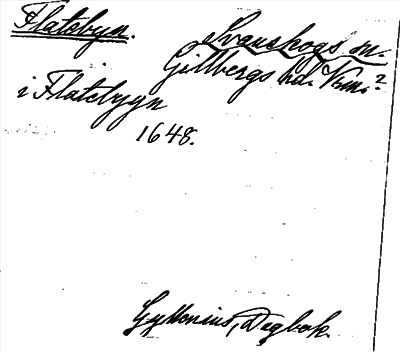 Flatebyn.
Svanskogs sn.
Gillbergs hd. Vrml.?
i Flatebygn
1648.
Gyllenius, Dagbok.